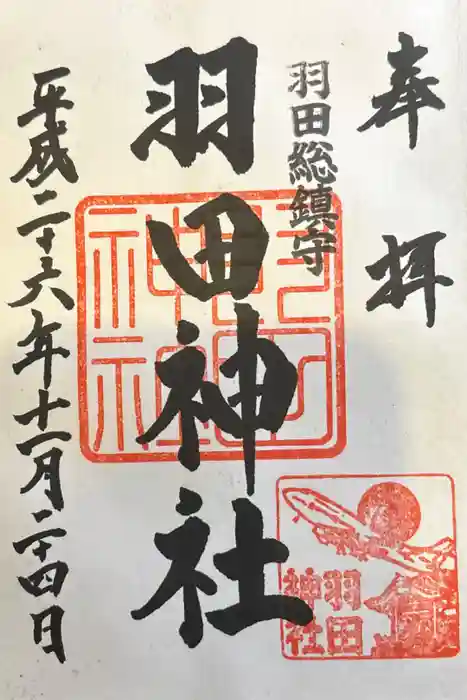 奉拝
羽田総鎮守
羽田神社
平成二十六年十一月二十四日
羽田
神社